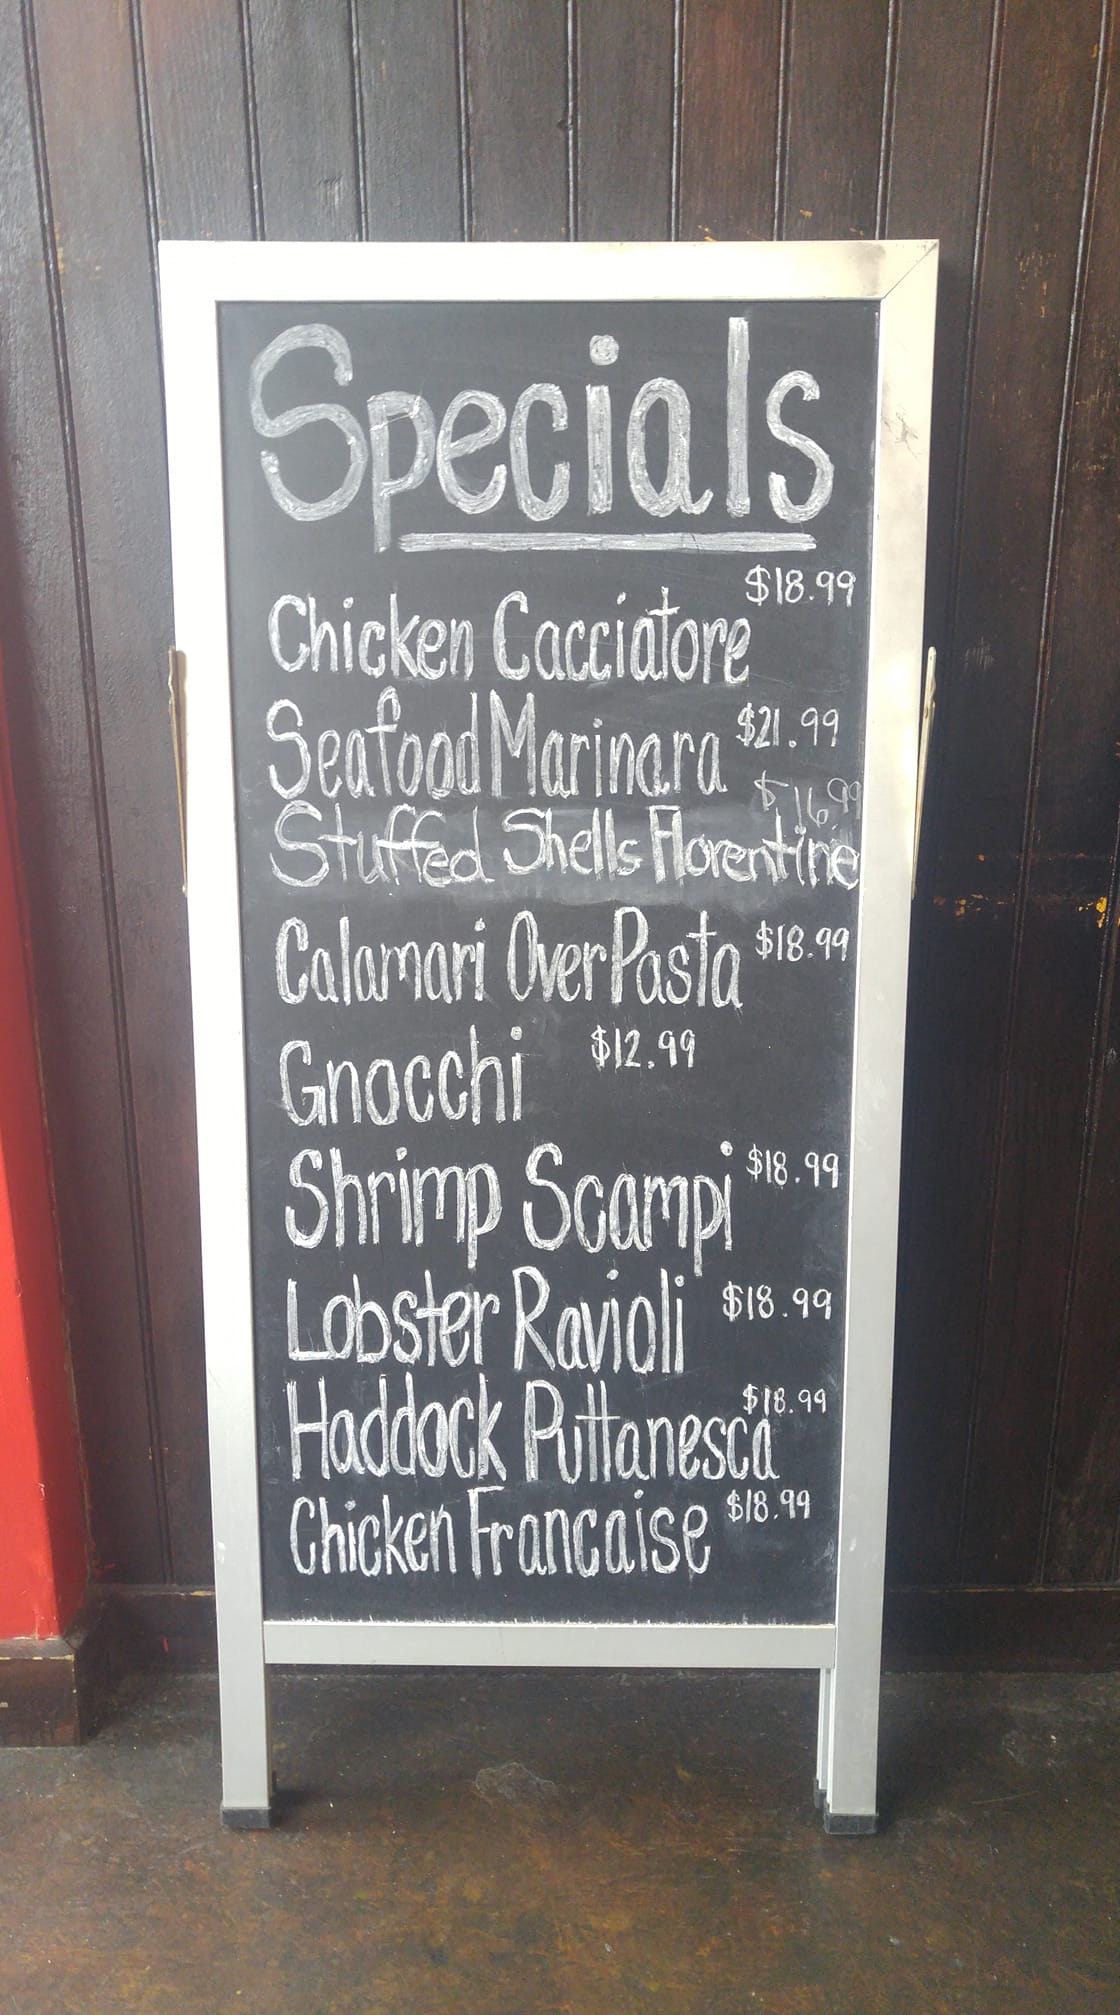 Specials
Chicken Cacciatore $18.99
Seafood Marinara $21.99
Stuffed Shells Florentine $16.99
Calamari Over Pasta $18.99
Gnocchi $12.99
Shrimp Scampi $18.99
Lobster Ravioli $18.99
Haddock Puttanesca $18.99
Chicken Francaise $18.99